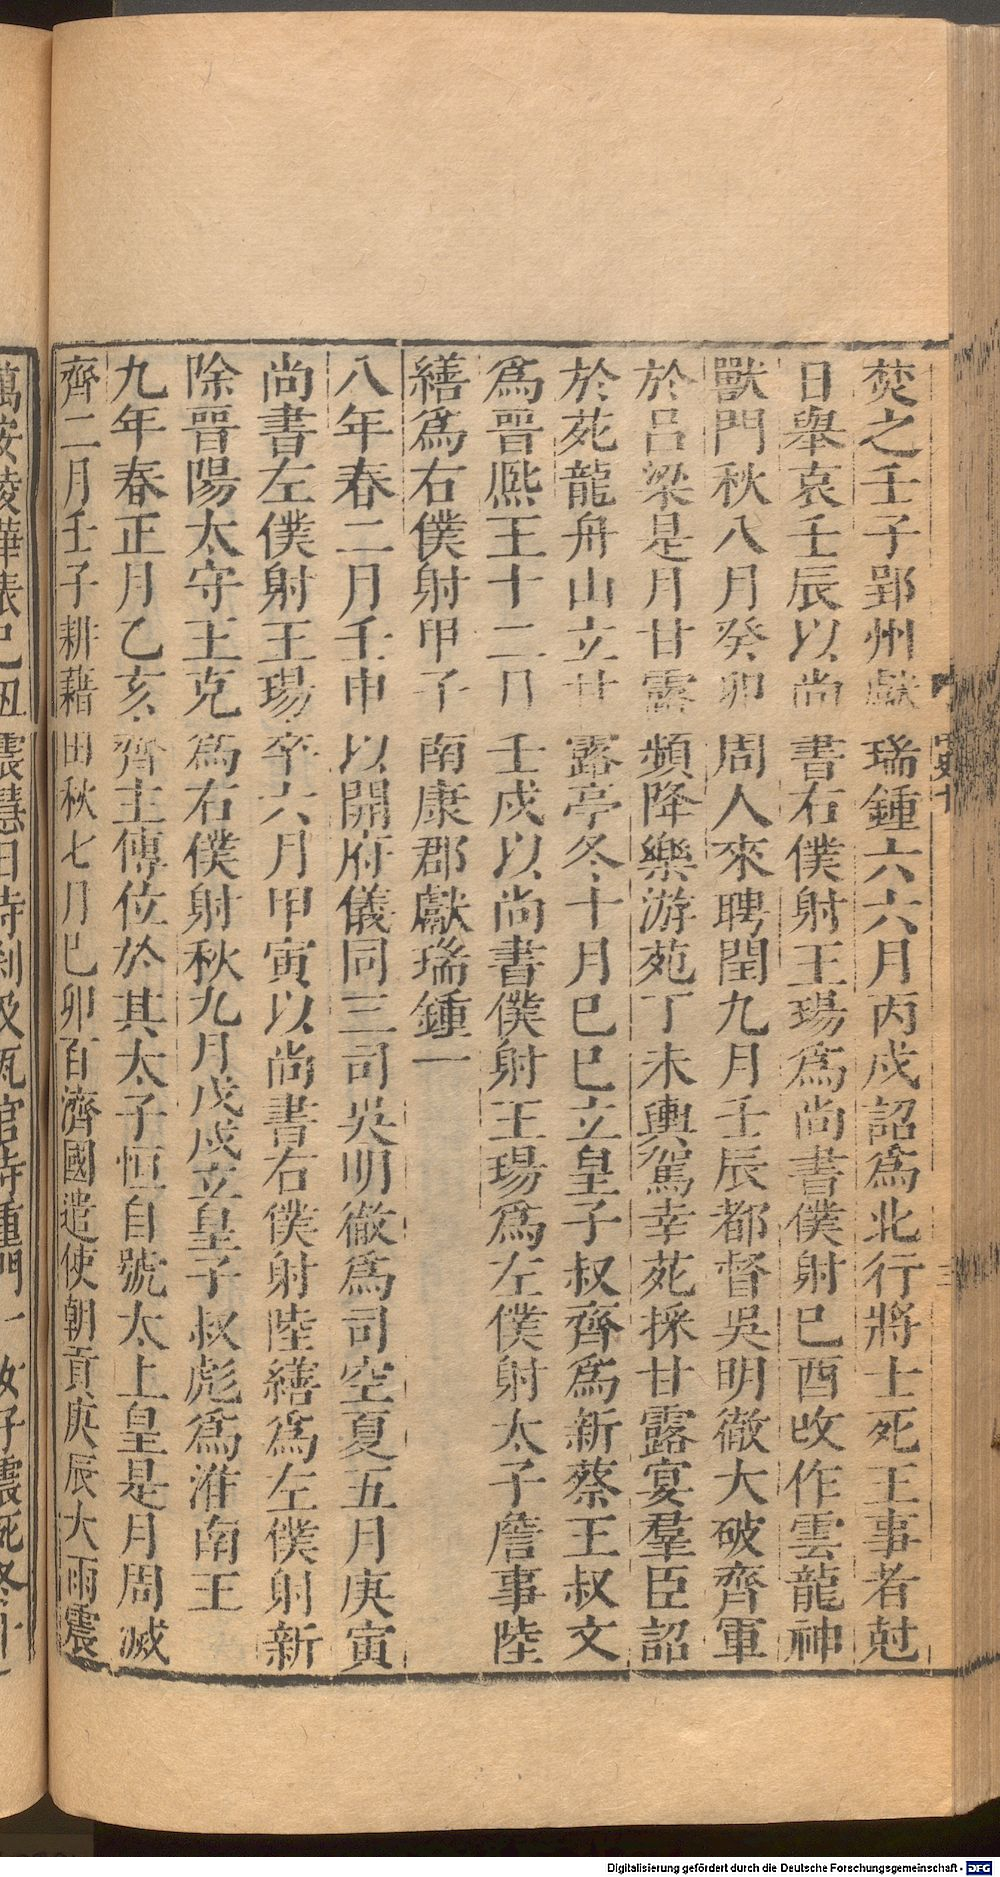 焚之壬子郢州獻瑞鍾六六月丙戌詔爲北行將士死王事者尅
日舉哀壬辰以尚書右僕射王瑒爲尚書僕射巳酉攺作雲龍神
獸門秋八月癸卯周人來聘閏九月壬辰都督吳明徹大破齊軍
於呂梁是月甘露頻降樂游苑丁未輿駕幸苑採甘露宴羣臣詔
於苑龍舟山立甘露亭冬十月巳巳立皇子叔齊爲新蔡王叔文
爲晋熈王十二月壬戌以尚書僕射王瑒爲左僕射太子詹事陸
繕爲右僕射甲子南康郡獻瑞鍾一
八年春二月壬申以開府儀同三司吳明徹爲司空夏五月庚寅
尚書左僕射王瑒卒六月甲寅以尚書右僕射陸繕爲左僕射新
除晋陽太守王克爲右僕射秋九月戊戌立皇子叔彪爲淮南王
九年春正月乙亥齊主傳位於其太子恒自號太上皇是月周滅
齊二月壬子耕藉田秋七月巳卯百濟國遣使朝貢庚辰大雨震
萬安陵華表巳丑震慧日寺刹及瓦官寺重門一女子震死冬十
Digitalisierung gefördert durch die Deutsche Forschungsgemeinschaft - DFG